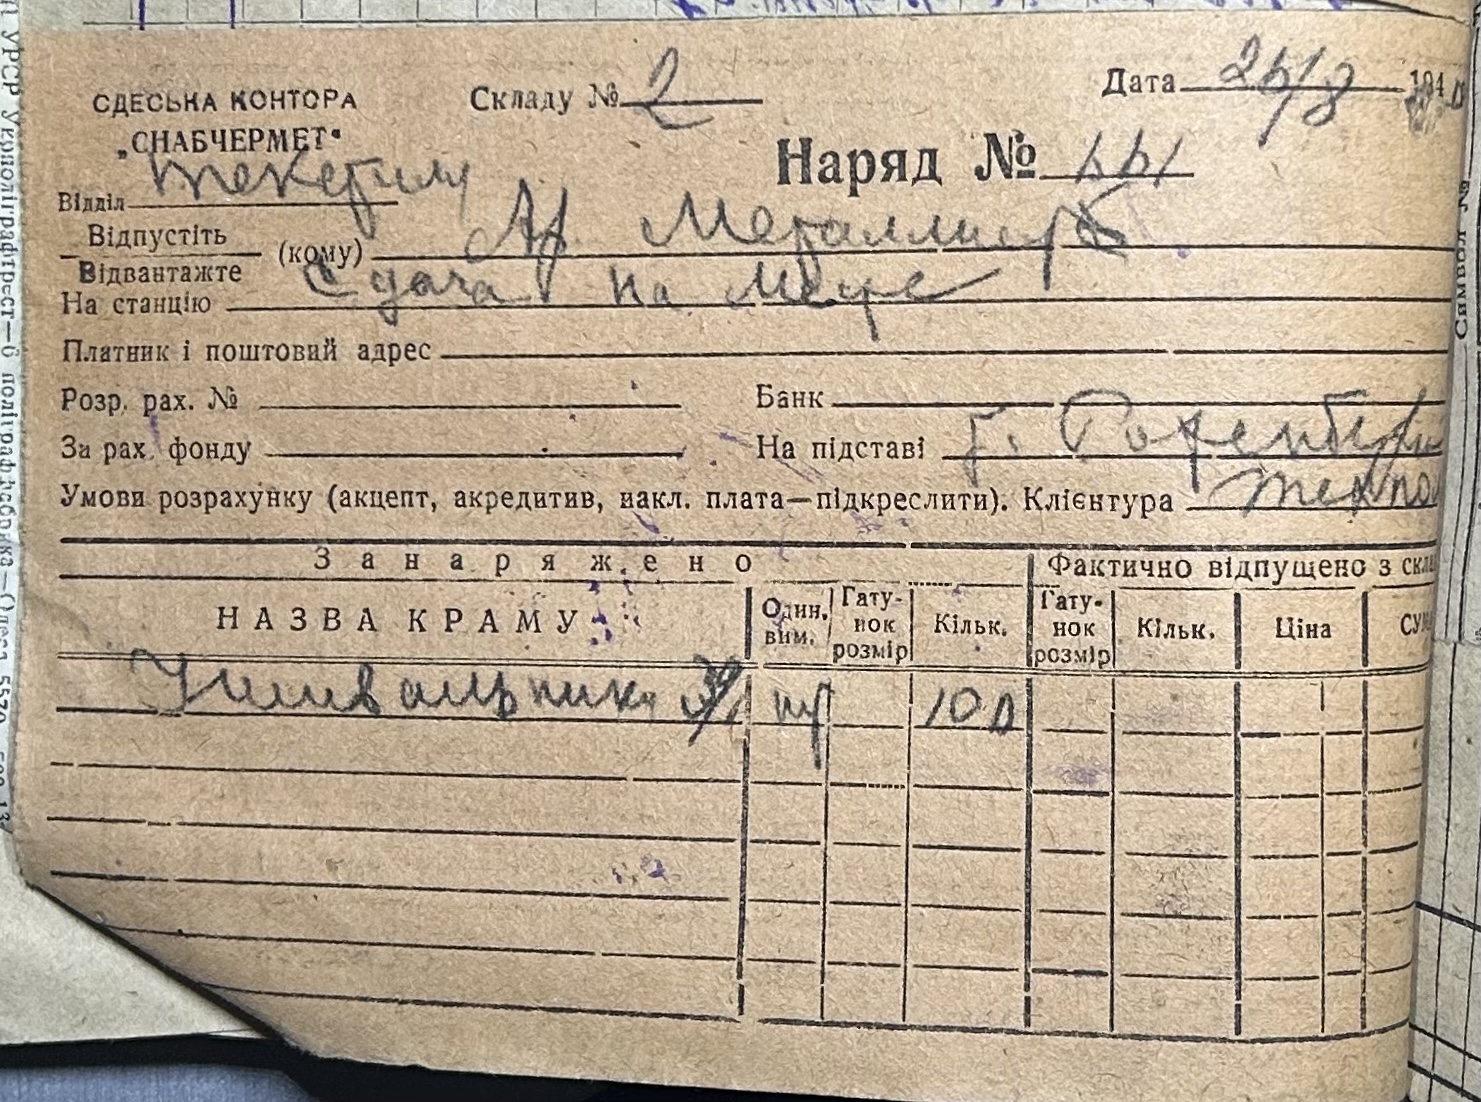 ОДЕСЬКА КОНТОРА
„СНАБЧЕРМЕТ“
Складу № 2
Дата 26/8 1940
Наряд №
Відділ
Відпустіть
Відвантажте
(кому) Ар. Металлист
На станцію Сдача на Месте
Платник і поштовий адрес
Розр. рах. №
Банк
За рах. фонду
На підставі Розенберг
Умови розрахунку (акцепт, акредитив, накл. плата—підкреслити). Клієнтура
Занаряжено
Фактично відпущено з скл
НАЗВА КРАМУ
Один. вим.
Гатунок розмір
Кільк.
Гатунок розмір
Кільк.
Ціна
Умывальники шт 100
УРСР Укрполіграфтрест—6 поліграффабрика—Одеса
Символ №